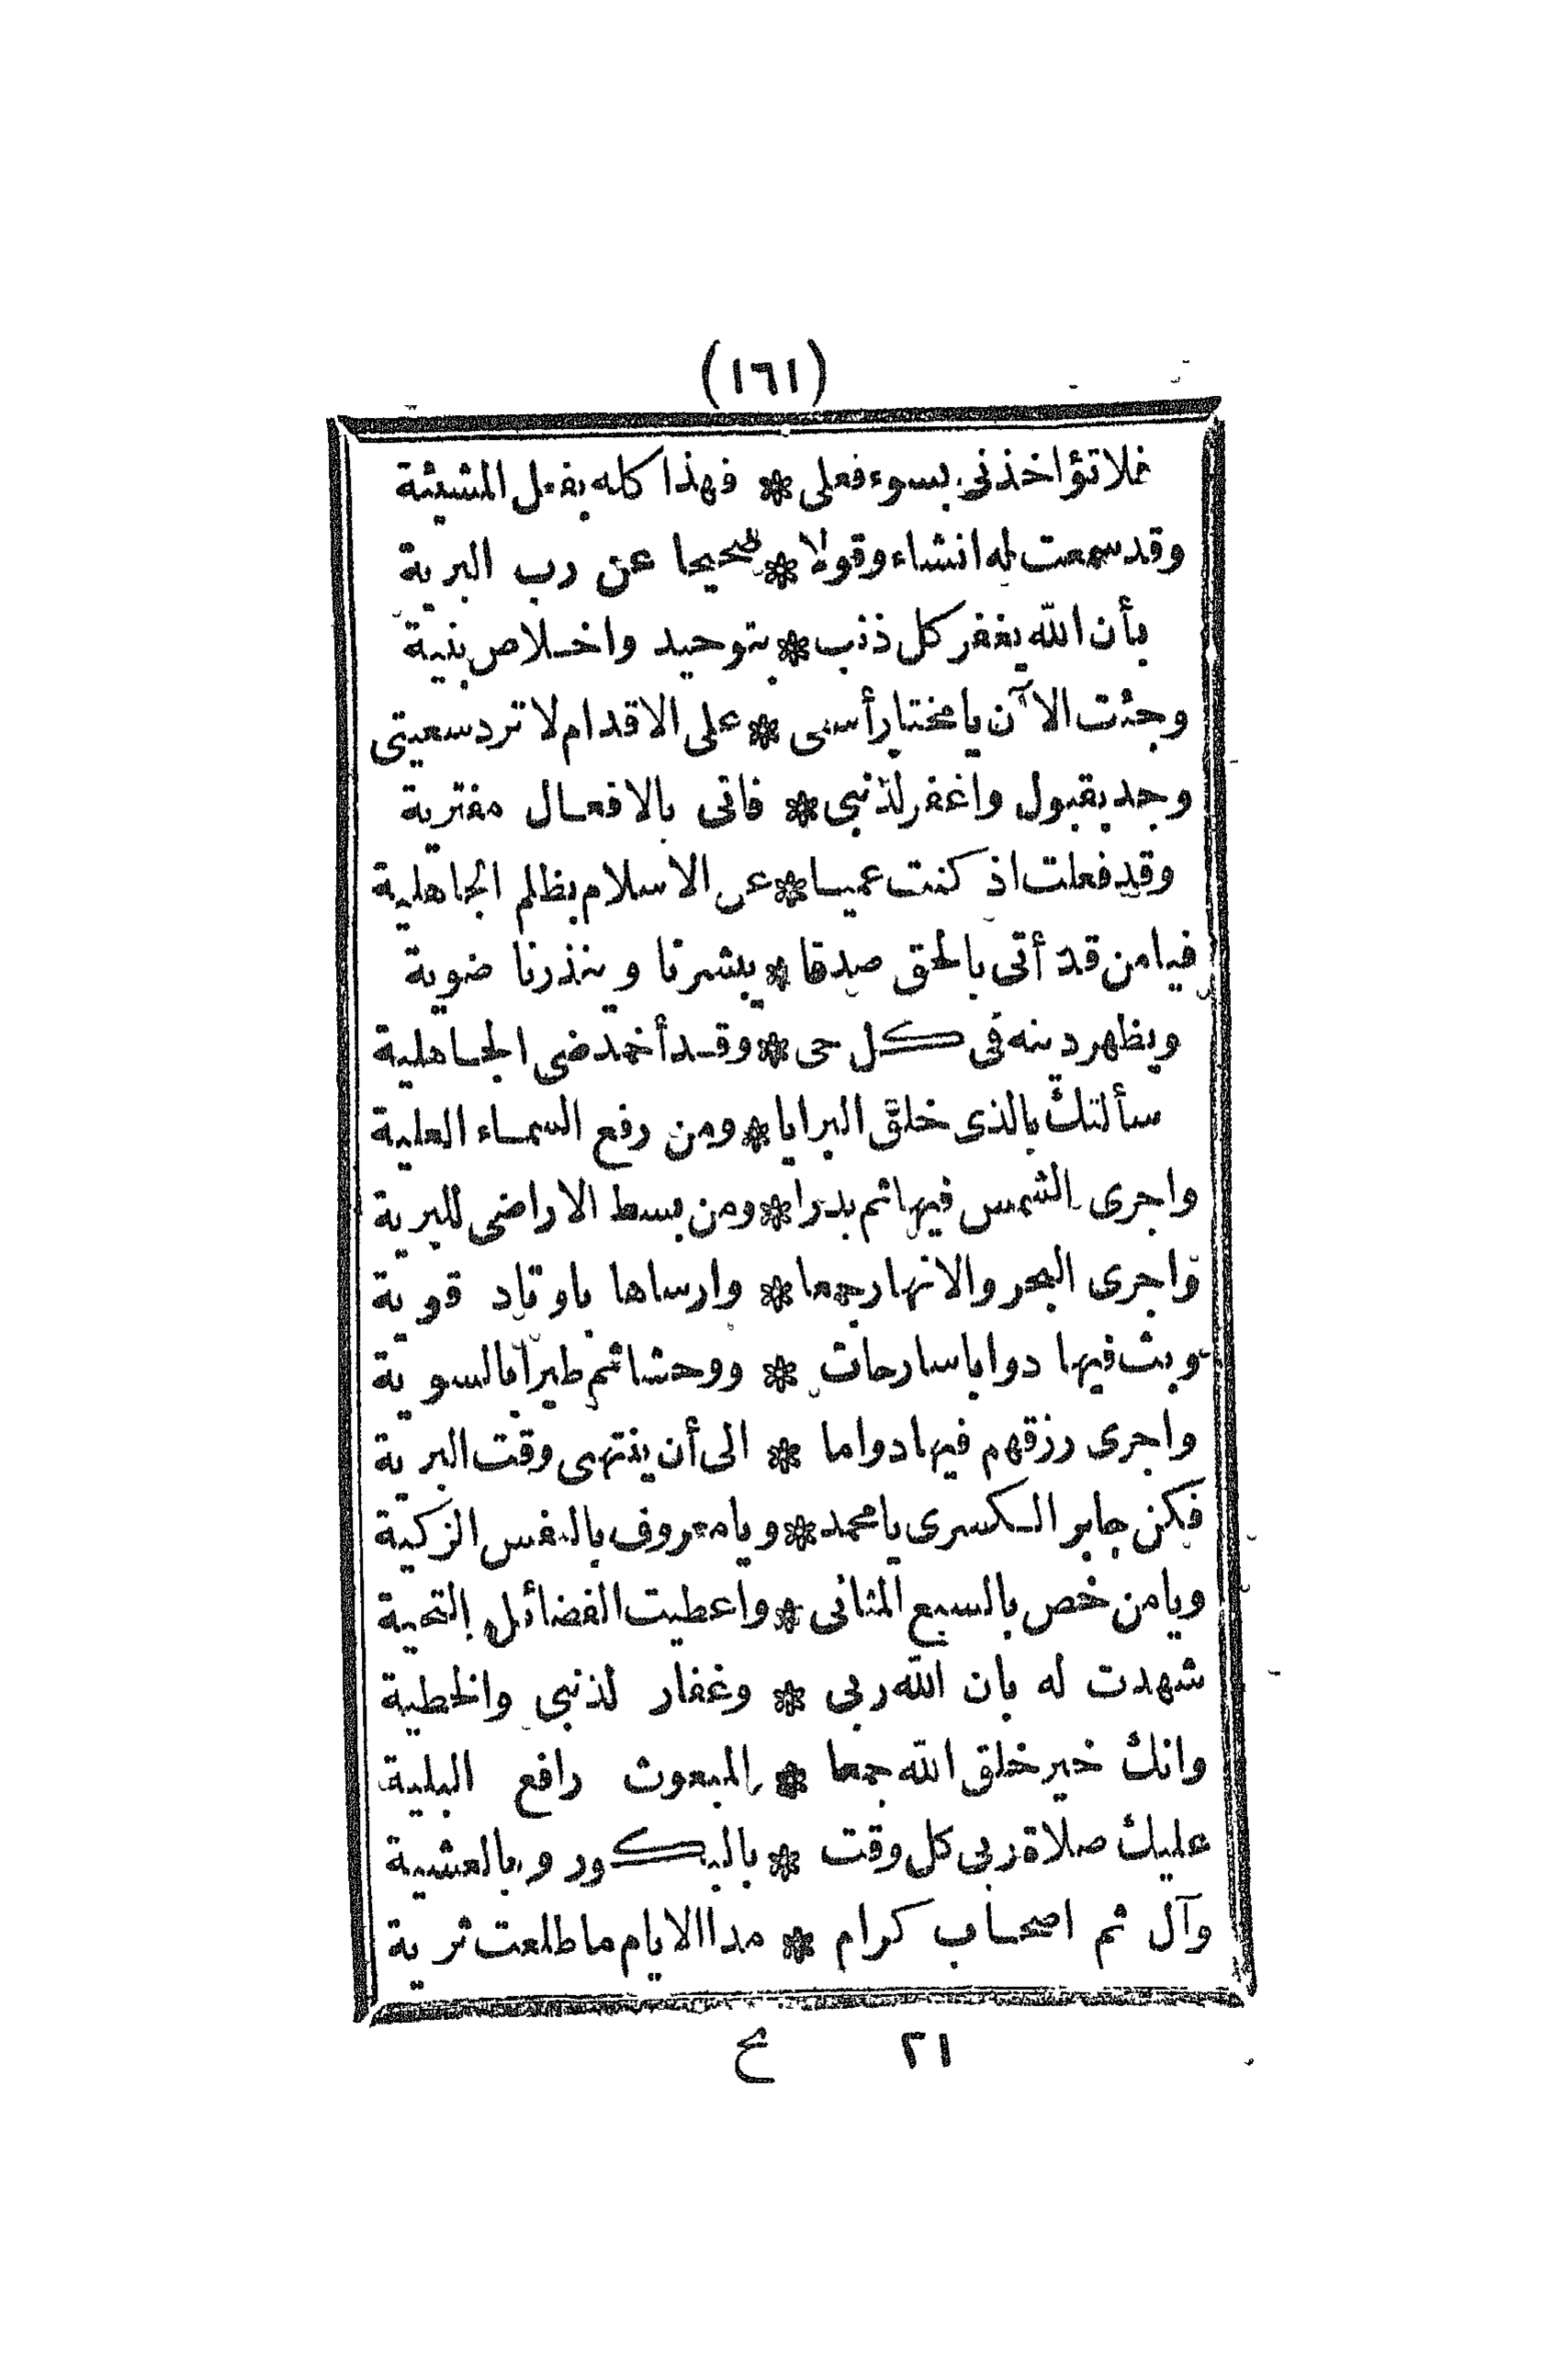 (١٦١)
فلا تؤاخذنى بسوء فعلى * فهذا كله بفعل المشيئة
وقد سمعت له انشاء وقولا * صحيحا عن رب البرية
بأن الله يغفر كل ذنب * بتوحيد واخلاص بنية
وجئت الآن يا مختار أسعى * على الاقدام لا ترد سعيتى
وجد بقبول واغفر لذنبى * فانى بالافعال مفترية
وقد فعلت اذ كنت عميا * عن الاسلام بظلم الجاهلية
فيا من قد أتى بالحق صدقا * يبشرنا وينذرنا ضوية
ويظهر دينه فى كل حى * وقد أخمد ضى الجاهلية
سألتك بالذى خلق البرايا * ومن رفع السماء العلية
واجرى الشمس فيها ثم بدرا * ومن بسط الاراضى للبرية
واجرى البحر والانهار جمعا * وارساها باوتاد قوية
وبث فيها دوابا سارحات * ووحشا ثم طيرا بالسوية
واجرى رزقهم فيها دواما * الى أن ينتهى وقت البرية
فكن جابر الكسرى يا محمد * ويا معروف بالنفس الزكية
ويا من خص بالسبع المثانى * واعطيت الفضائل التحية
شهدت له بان الله ربى * وغفار لذنبى والخطية
وانك خير خلق الله جمعا * المبعوث رافع البلية
عليك صلاة ربى كل وقت * بالبكور وبالعشية
وآل ثم اصحاب كرام * مدا الايام ما طلعت ثرية
٢١ ح